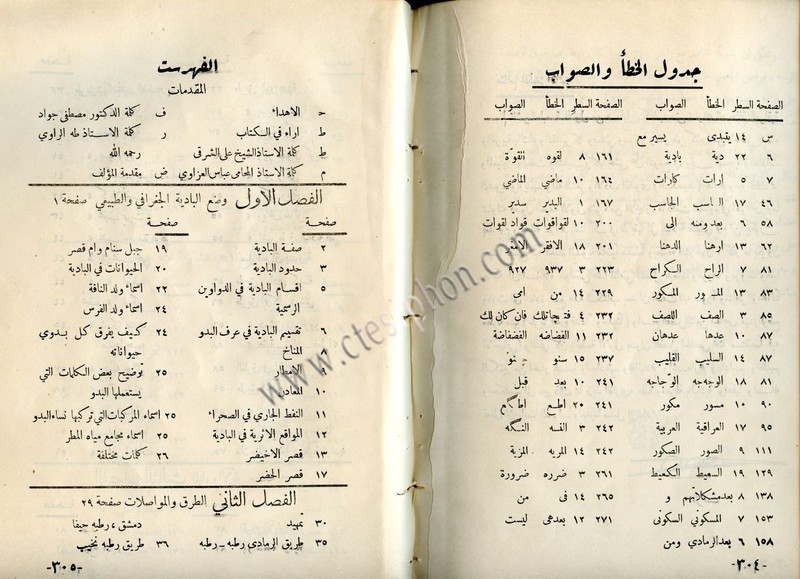 جدول الخطأ والصواب
الصفحة السطر الخطأ الصواب
س ١٤ يقبدى يسير مع
٦ ٢٢ دية بادية
٧ ٥ ارات كارات
٤٦ ١٧ الحاسب
٥٨ ٦ بعد ومنه الى
٦٢ ١٣ ارهنا الدهنا
٨١ ٧ الراح السكراح
٨٣ ١٣ المكور
٨٥ ٣ الصف اللصف
٨٧ ١٠ عدها عدهان
٨٧ ١٤ السليب القليب
٨١ ١٨ الوجهجه الوجاجه
٩٠ ١٠ مسور مكور
٩٥ ١٧ العراقية العربية
١١١ ٩ الصور الصكور
١٢٩ ١٩ السعيط الكعيط
١٣٨ ٨ بعد مشكلاتهم و
١٥٣ ٧ المسكوني السكونى
١٥٨ ٦ بعد الرمادي ومن
الصفحة السطر الخطأ الصواب
١٦١ ٨ لقوه القوّة
١٦٤ ١٠ ماضي الماضي
١٦٧ ١ البدير سدير
٢٠٠ ١٠ لقواقوات قواد لقوات
٢٠١ ١٨ الافقر
٢٢٣ ٣ ٩٣٧ ٩٢٧
٢٢٩ ١٤ من امى
٢٣٢ ٤ فان كان لك
٢٣٢ ١١ الفضاضه الفضفاضة
٢٣٧ ١٥ سنو
٢٤١ ١٠ بعد قبل
٢٤١ ٢٠ اطع
٢٤٢ ٣ الفسه النكه
٢٤٢ ١٤ المريه المزية
٢٦١ ٣ ضرره ضرورة
٢٦٥ ١٤ فى من
٢٧١ ١٢ بعدهى ليست
-٣٠٤-
الفهرست
المقدمات
ح الاهداء
ط اراء في الكتاب
ط كلمة الاستاذ الشيخ على الشرقى
م كلمة الاستاذ المحامى عباس العزاوي
ف كلمة الدكتور مصطفى جواد
ر كلمة الاستاذ طه الراوي
رحمه الله
ض مقدمة المؤلف
الفصل الاول وضع البادية الجغرافي والطبيعي صفحة ١
صفحة
٢ صفة البادية
٣ حدود البادية
٥ اقسام البادية في الدواوين
الرسمية
٦ تقسيم البادية في عرف البدو
٨ المناخ
٩ الامطار
١٠ المعادن
١١ النفط الجاري في الصحراء
١٢ المواقع الاثرية في البادية
١٣ قصر الاخيضر
١٧ قصر الخضر
صفحة
١٩ جبل سنام وام قصر
٢٠ الحيوانات في البادية
٢٢ اسماء ولد الناقة
٢٤ اسماء ولد الفرس
٢٤ كيف يفرق كل بدوي
حيواناته
٢٥ توضيح بعض الكلمات التي
يستعملها البدو
٢٥ اسماء المركبات التي تركبها نساء البدو
٢٥ اسماء مجامع مياه المطر
٢٦ كلمات مختلفة
الفصل الثاني الطرق والمواصلات صفحة ٢٩
٣٠ تمهيد
٣٥ طريق الرمادى رطبه - رطبه
دمشق، رطبه حيفا
٣٦ طريق رطبه نخيب
-٣٠٥-
www.ctesiphon.com